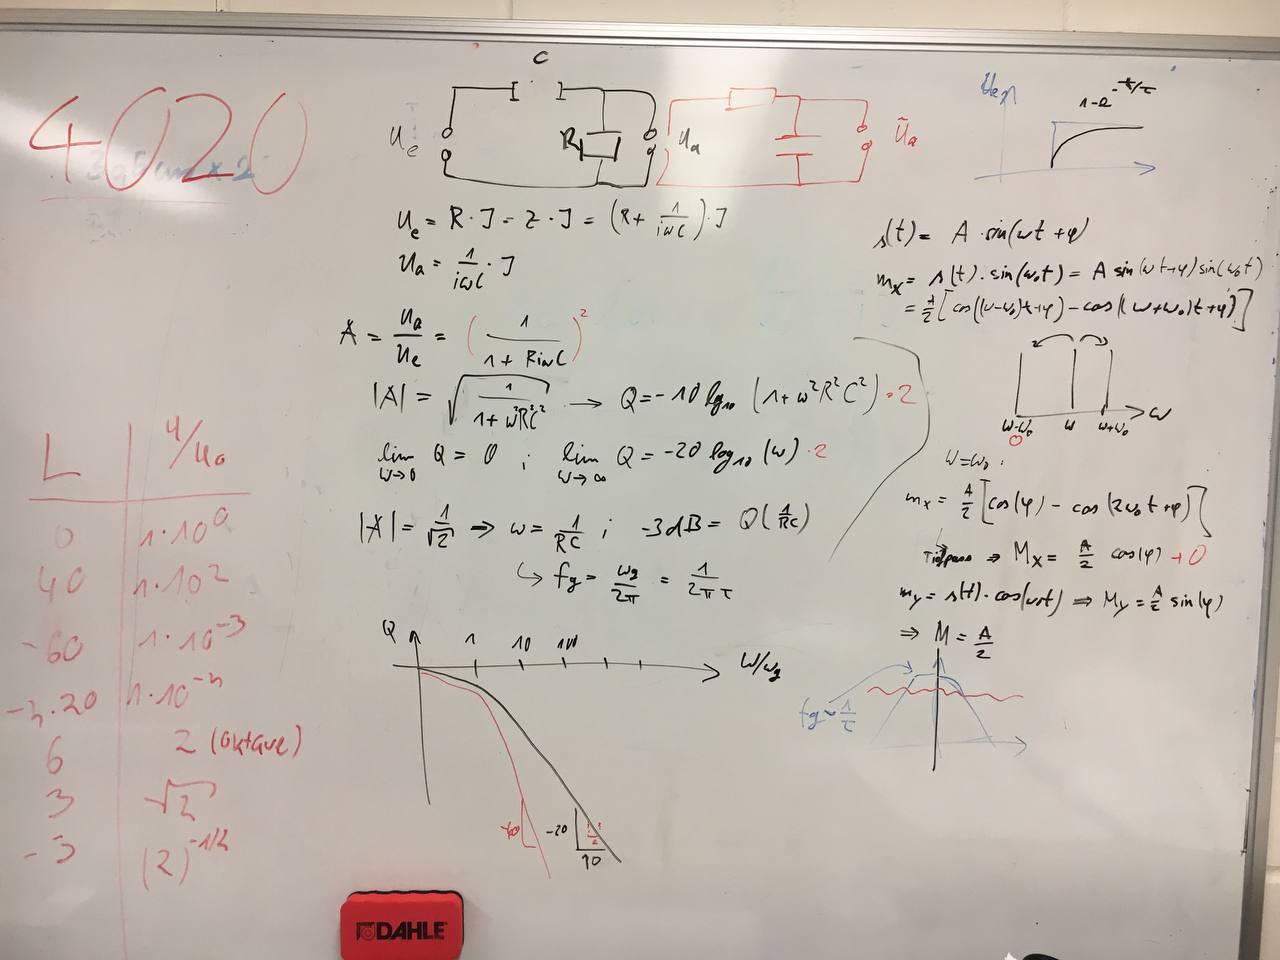 4020
L | U/U₀
0 | 1·10⁰
40 | 1·10²
-60 | 1·10⁻³
-n·20 | 1·10⁻ⁿ
6 | 2 (Oktave)
3 | √2
-3 | (2)^(-1/2)
C
U_e
R
U_a
Ũ_a
U_e = R·I = Z·I = (R + 1/(iωC))·I
U_a = 1/(iωC) · I
A = U_a/U_e = (1/(1 + RiωC))²
|A| = √(1/(1+ω²R²C²)) → Q = -10 log₁₀ (1+ω²R²C²) ·2
lim ω→0 Q = 0 ; lim ω→∞ Q = -20 log₁₀(ω) ·2
|A| = 1/√2 ⇒ ω = 1/RC ; -3dB = Q(1/RC)
↳ fg = ωg/2π = 1/(2πτ)
Q
1 10 100
ω/ωg
-40
-20
10
1-e^(-t/τ)
s(t) = A·sin(ωt+φ)
m_x = s(t)·sin(ω₀t) = A sin(ωt+φ) sin(ω₀t)
= A/2 [cos((ω-ω₀)t+φ) - cos((ω+ω₀)t+φ)]
ω-ω₀ ω ω+ω₀ ω
0
ω=ω₀ :
m_x = A/2 [cos(φ) - cos(2ω₀t+φ)]
Tiefpass ⇒ M_x = A/2 cos(φ) +0
m_y = s(t)·cos(ω₀t) ⇒ M_y = A/2 sin(φ)
⇒ M = A/2
fg ~ 1/τ
DAHLE